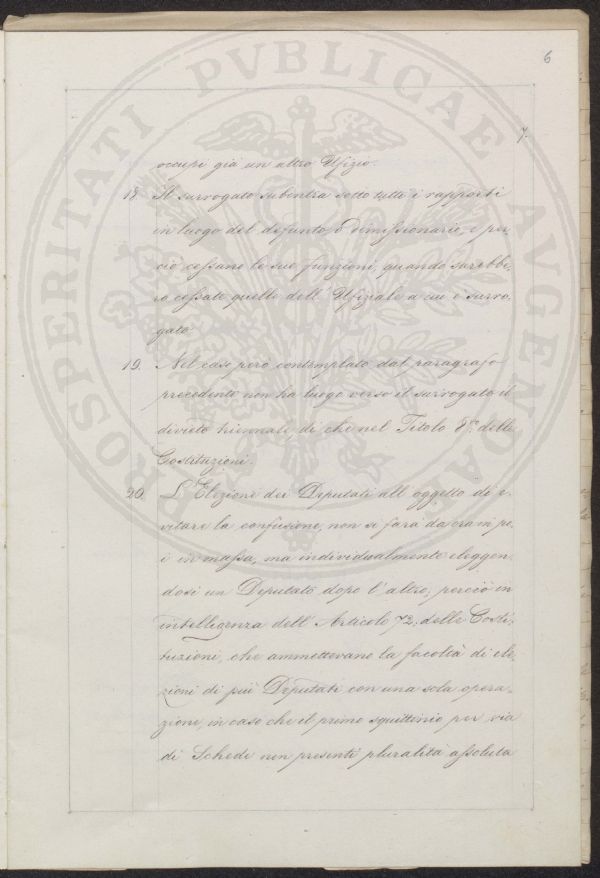 6
7.
occupi già un altro Ufizio.
18. Il surrogato subentra sotto tutti i rapporti
in luogo del defunto, o demissionario, e per
ciò cessano le sue funzioni, quando sarebbe,
ro cessate quelle dell' Ufiziale a cui è surro,
gato.
19. Nel caso però contemplato dal paragrafo
precedente non ha luogo verso il surrogato il
divieto triennale, di che nel Titolo 8.º delle
Costituzioni.
20. L'Elezione dei Deputati all' oggetto di e,
vitare la confusione, non si farà da ora in po,
i in massa, ma individualmente eleggen,
dosi un Deputato dopo l' altro; perciò in
intelligenza dell' Articolo 72, delle Costi,
tuzioni, che ammettevano la facoltà di ele,
zioni di più Deputati con una sola opera,
zione, in caso che il primo squittinio per via
di Schede non presenti pluralità assoluta
PROSPERITATI PVBLICAE AVGENDAE